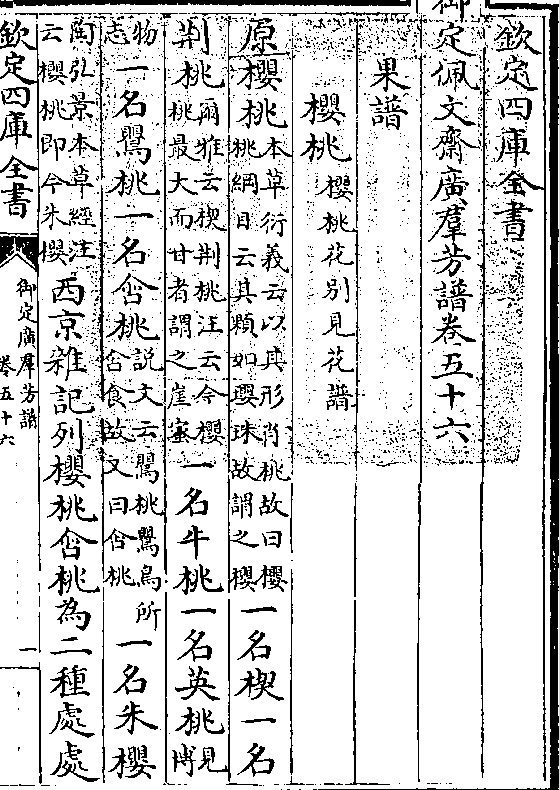 欽定四庫全書
御定佩文齋廣羣芳譜卷五十六
果譜
櫻桃 櫻桃花別見花譜
原櫻桃 本草衍義云以其形肖桃故曰櫻
桃綱目云其顆如瓔珠故謂之櫻 一名楔一名
荆桃 爾雅云楔荆桃注云今櫻
桃最大而甘者謂之崖蜜 一名牛桃一名英桃 見
博
物
志 一名鸎桃一名含桃 說文云鸎桃鸎鳥所
含食故又曰含桃 一名朱櫻
陶弘景本草經注
云櫻桃即今朱櫻 西京雜記列櫻桃含桃為二種處處
欽定四庫全書
御定廣羣芳譜
卷五十六
一